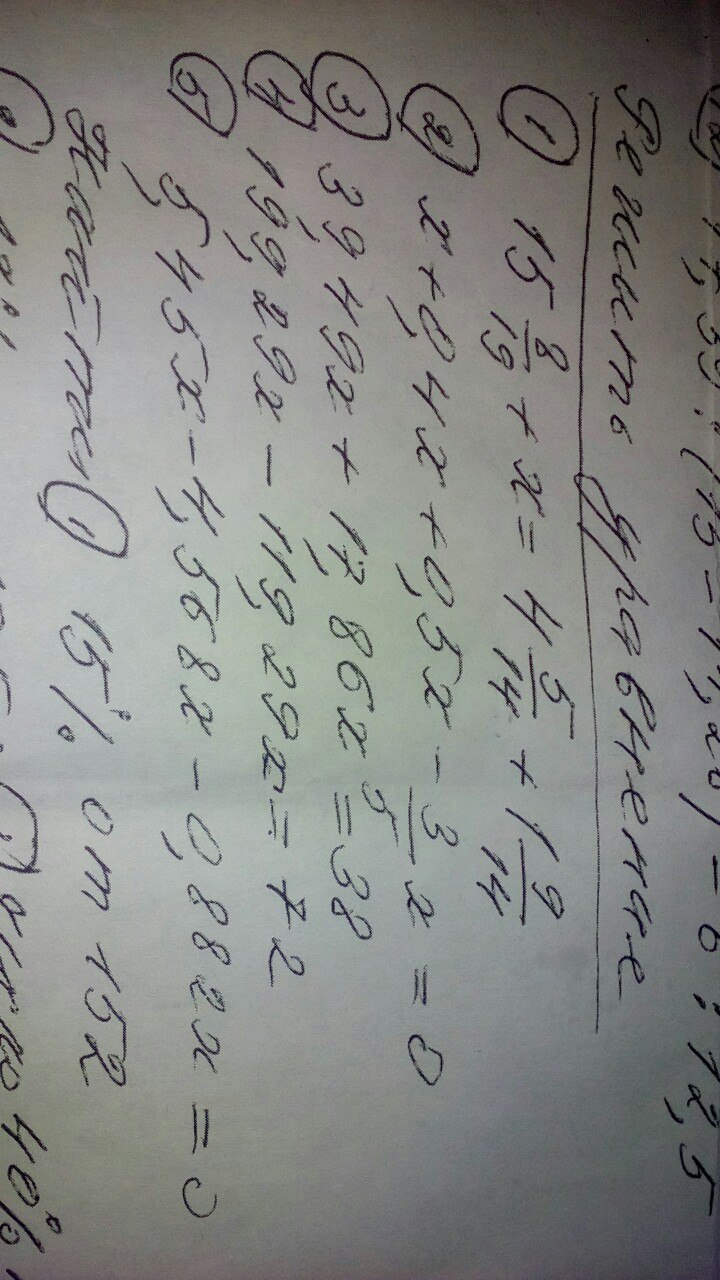 17,39 : (15 - 11,26) - 6 : 12,5
Решить уравнение
① 15 8/19 + x = 4 5/14 + 1 9/14
② x + 0,4x + 0,5x - 3/5 x = 0
③ 3,949x + 17,86x = 38
④ 19,929x - 11,929x = 72
⑤ 5,45x - 4,568x - 0,882x = 0
Найти ① 15% от 152
40%